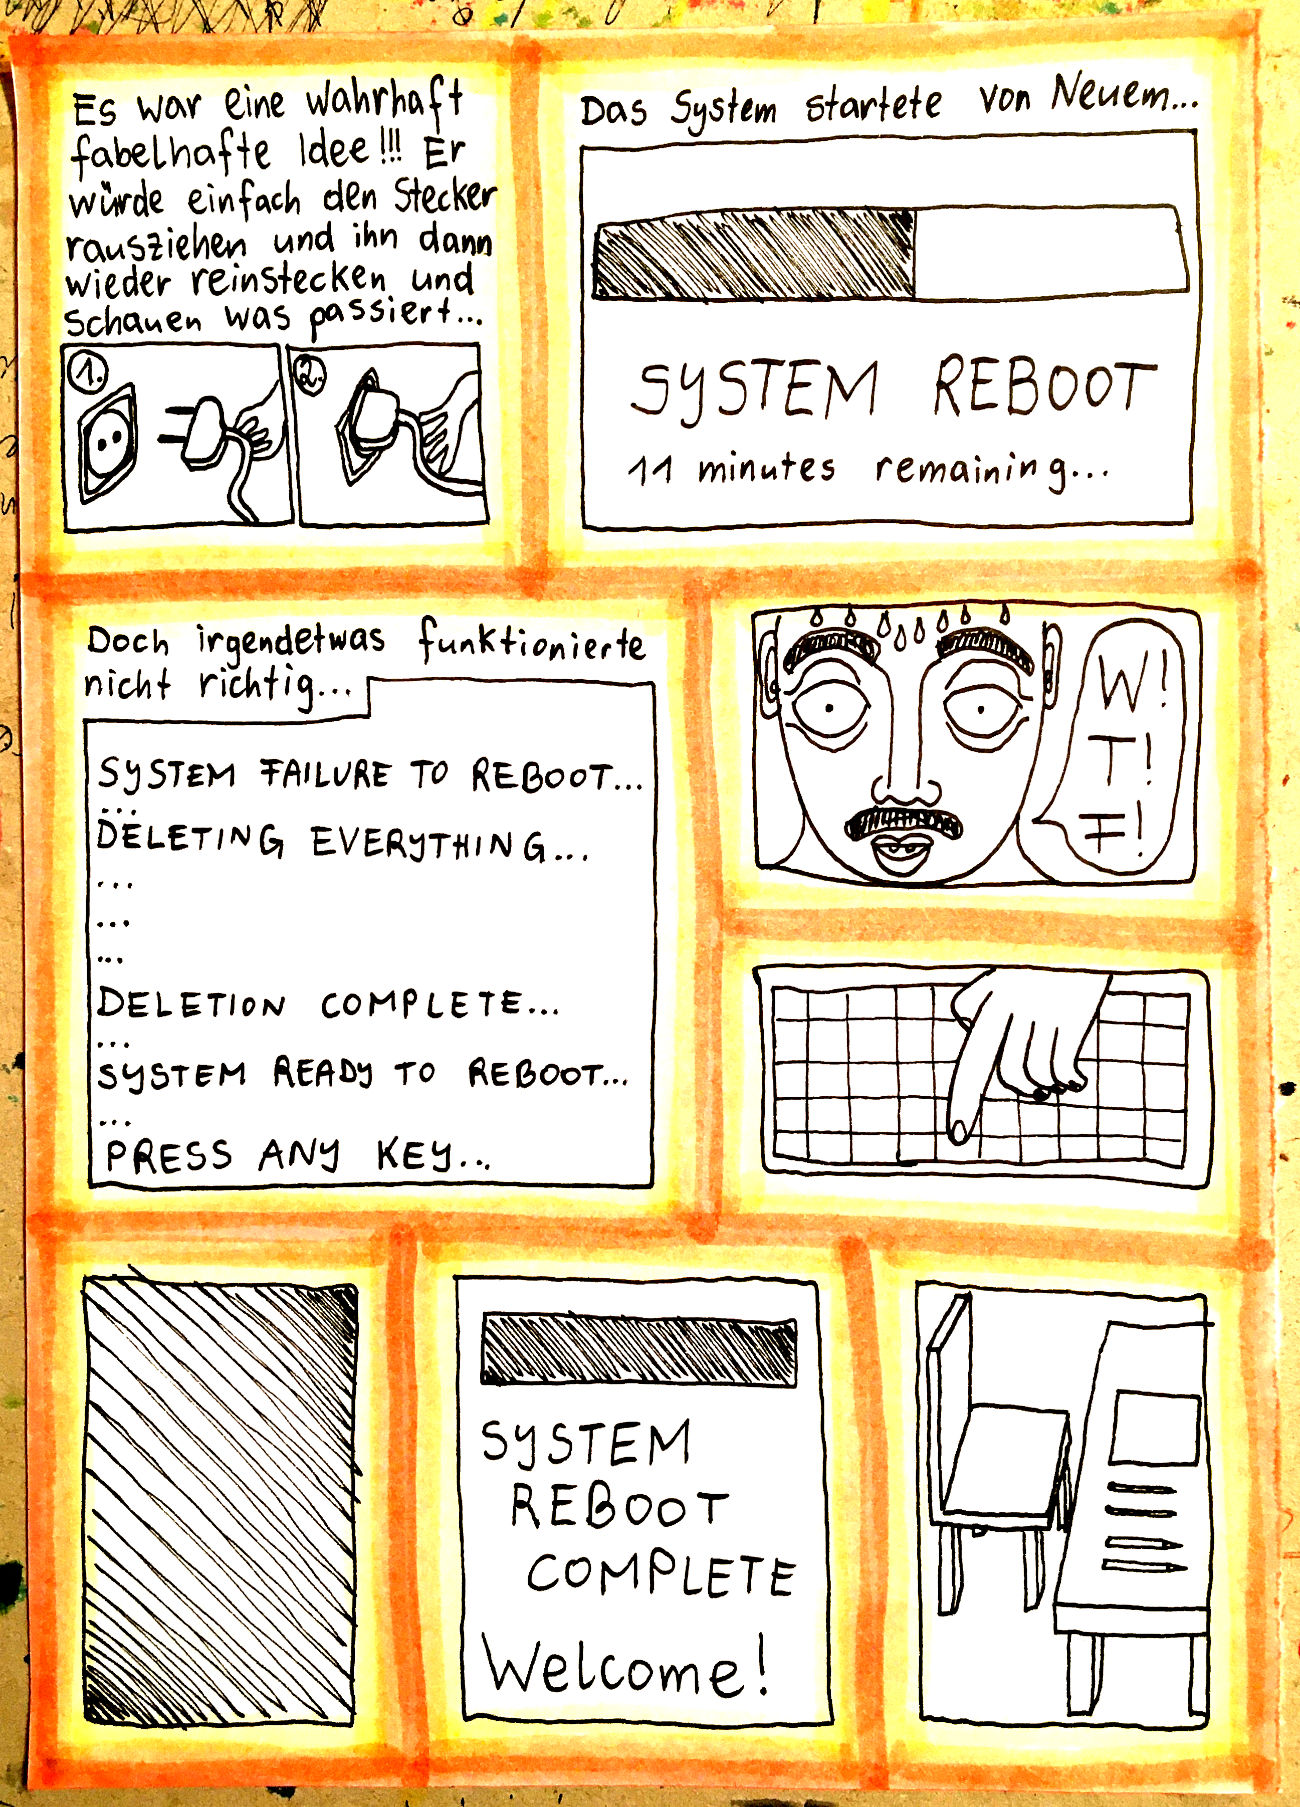 Es war eine wahrhaft
fabelhafte Idee!!! Er
würde einfach den Stecker
rausziehen und ihn dann
wieder reinstecken und
schauen was passiert...
1.
2.
Das System startete von Neuem...
SYSTEM REBOOT
11 minutes remaining...
Doch irgendetwas funktionierte
nicht richtig...
SYSTEM FAILURE TO REBOOT...
...
DELETING EVERYTHING...
...
...
...
DELETION COMPLETE...
...
SYSTEM READY TO REBOOT...
...
PRESS ANY KEY...
W!
T!
F!
SYSTEM
REBOOT
COMPLETE
Welcome!